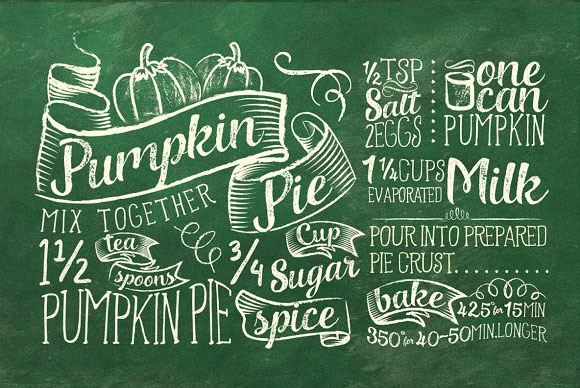 Pumpkin
Pie
MIX TOGETHER
1 1/2 tea spoons
PUMPKIN PIE
spice
3/4 Cup
Sugar
1/2 TSP
Salt
2EGGS
one
can
PUMPKIN
1 1/4 CUPS
EVAPORATED
Milk
POUR INTO PREPARED
PIE CRUST..........
bake 425° for 15 MIN
350° for 40-50 MIN. LONGER